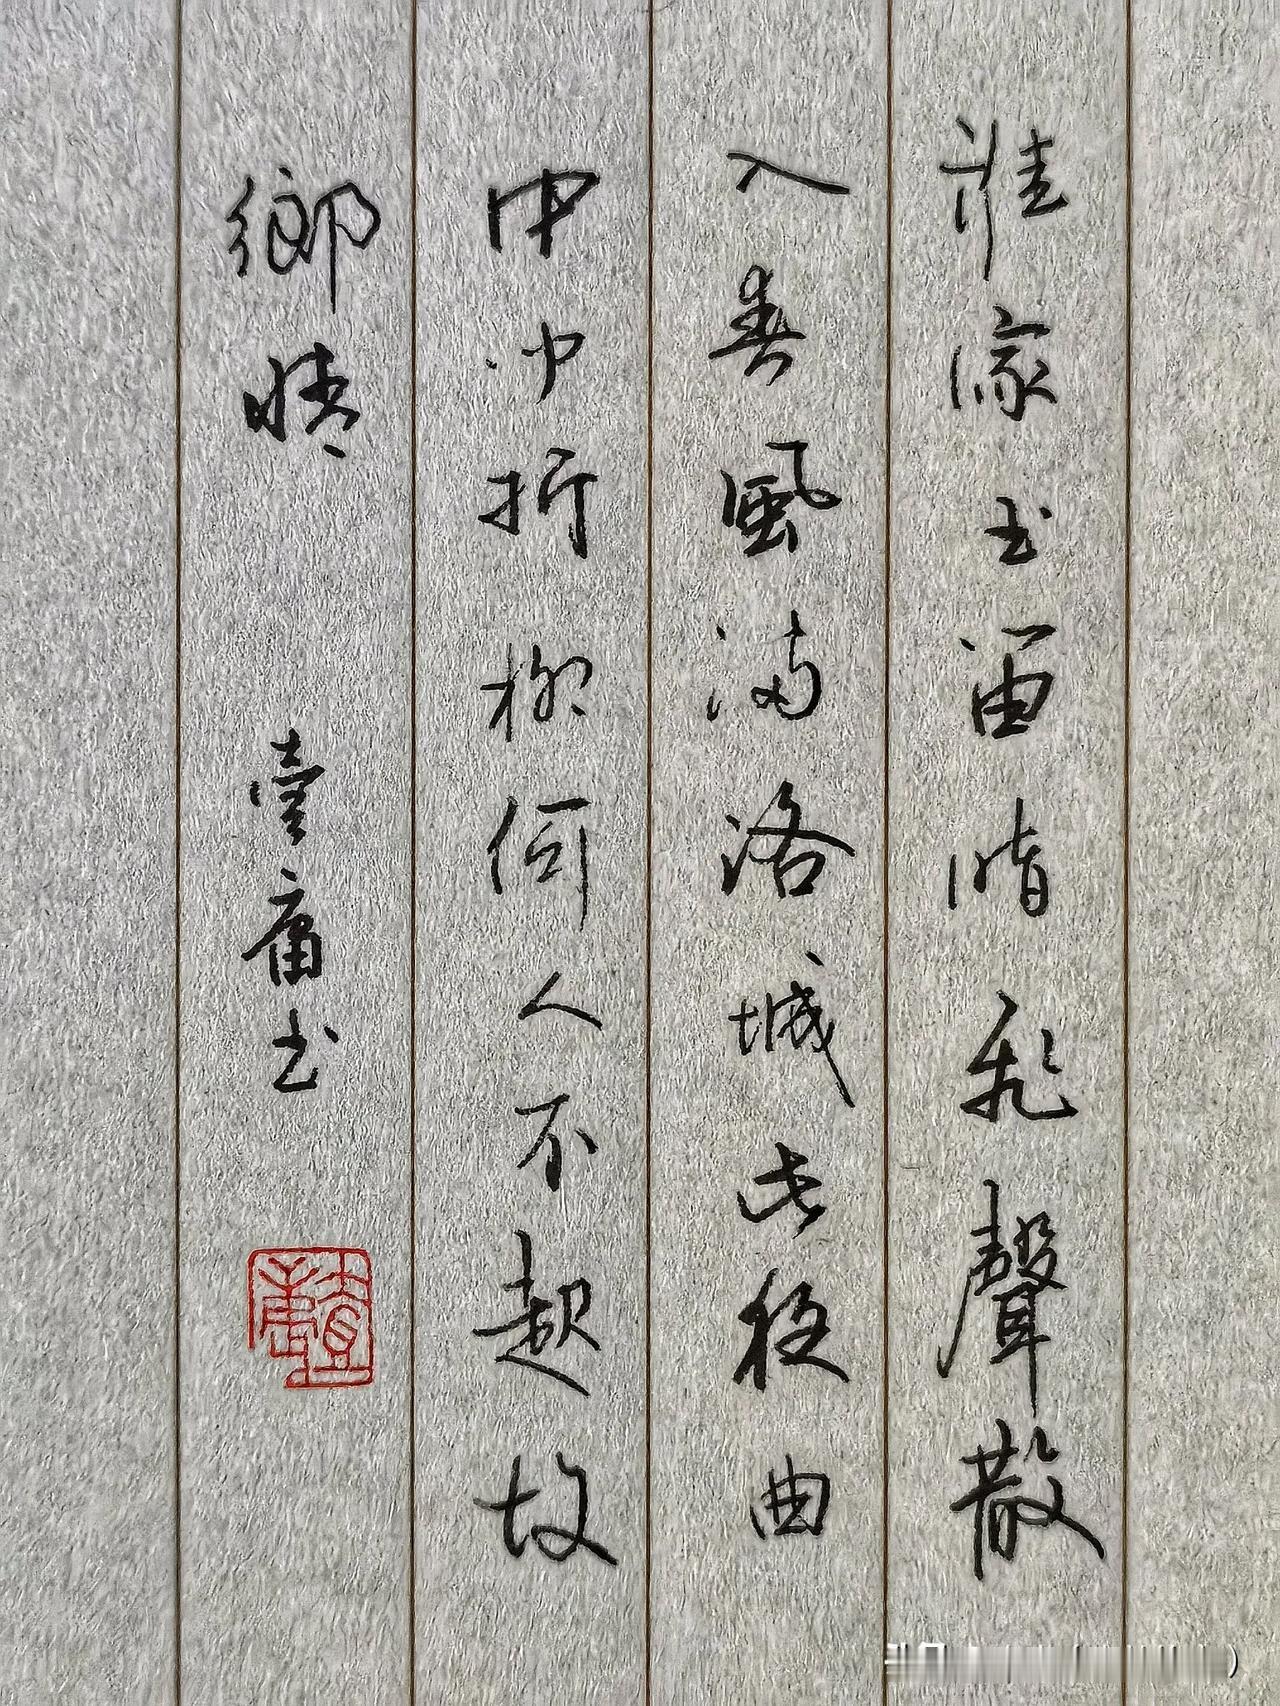 誰家玉笛暗飛聲散
入春風滿洛城此夜曲
中聞折柳何人不起故
鄉情
庸书